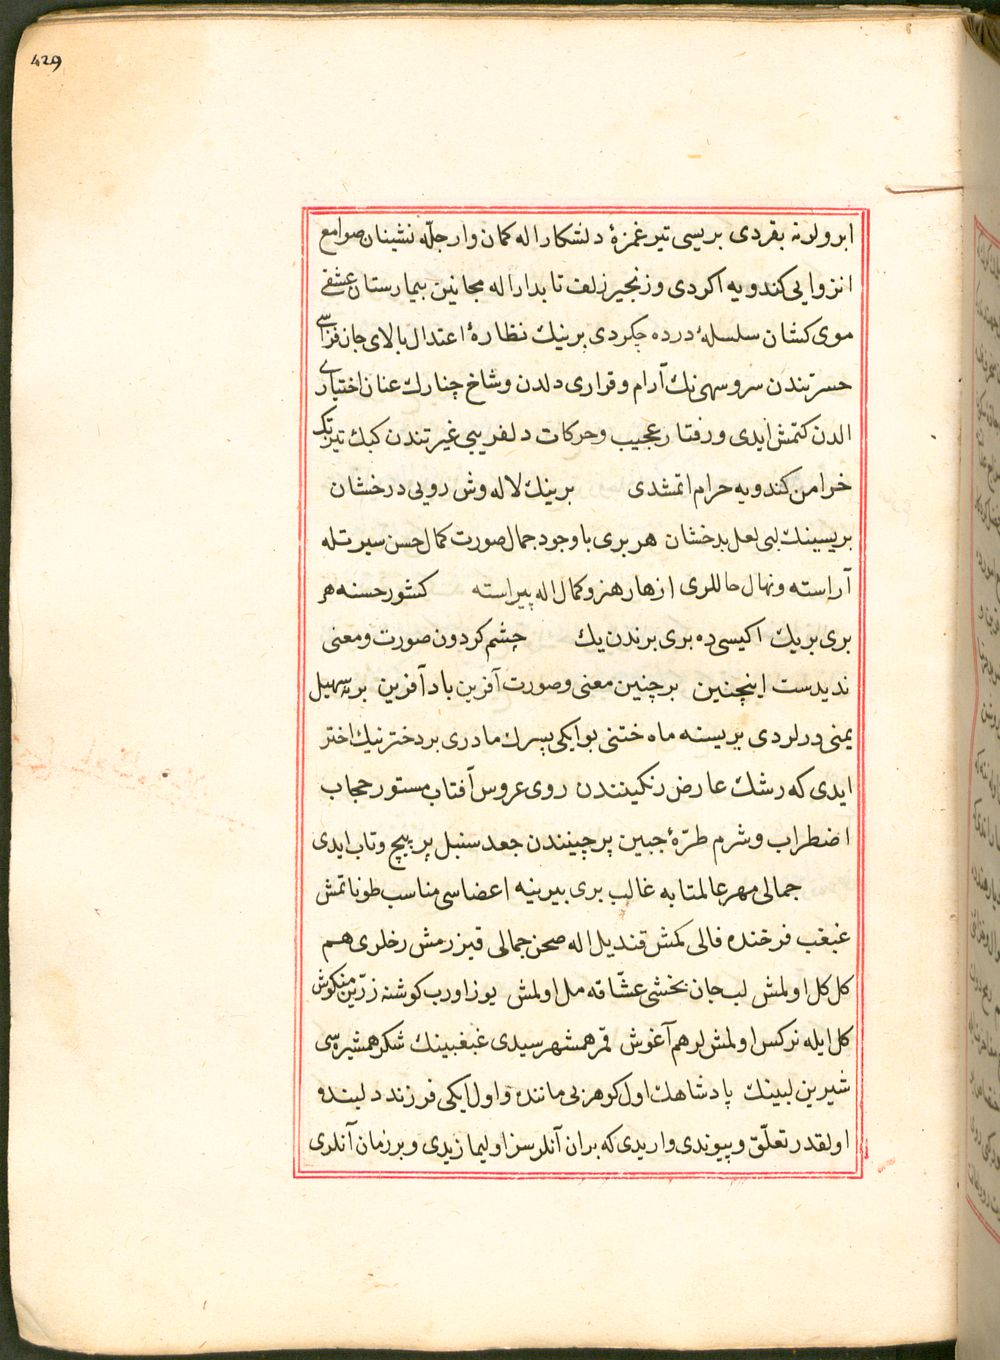 429
ابرولرنه بقردی بریسی تیر غمزهٔ دلشکار اله کمان وار جلّه نشینان صوامع
انزوایی کندویه اکردی و زنجیر زلف تابدار اله مجانین بیمارستان عشقی
موی کشان سلسلهٔ درده چکردی برینك نظارهٔ اعتدال بالای جان فزاسی
حسرتندن سرو سهی نك آرام و قراری دلدن و شاخ چنارك عنان اختیاری
الدن کتمش ایدی و رفتار عجیب و حرکات دلفریبی غیرتندن کبك تیزتك
خرامن کندویه حرام اتمشدی برینك لاله وش رویی درخشان
بریسینك لبی لعل بدخشان هر بری با وجود جمال صورت کمال حسن سیرتله
آراسته و نهال حاللری ازهار هنر و کمال اله پیراسته کشور حسنه هر
بری بر بك ایکیسی ده بری برندن یك چشم کردون صورت و معنی
ندیدست اینچنین بر چنین معنی و صورت آفرین باد آفرین برنه سهیل
یمنی درلردی بریسنه ماه ختنی بو ایکی پسرك مادری بر دختر نیك اختر
ایدی که رشك عارض رنکینندن روی عروس آفتاب مستور حجاب
اضطراب و شرم طرّهٔ جبین پر چینندن جعد سنبل پر پیچ و تاب ایدی
جمالی مهر عالمتابه غالب بری بیرینه اعضاسی مناسب طوناتمش
غبغب فرخنده فالی کمش قندیل اله صحن جمالی قیزرمش رخلری هم
کل کل اولمش لب جان بخشی عشّاقه مل اولمش یوز اورب کوشنه زرّین منکوش
کل ایله نرکس اولمشلر هم آغوش قمر همشهرسیدی غبغبینك شکر همشیره سی
شیرین لبینك پادشاهك اول کوهر بی مانندە و اول ایکی فرزند دلبنده
اولقدر تعلّق و پیوندی واریدی که بر ان آنلرسز اولیمازیدی و بر زمان آنلری